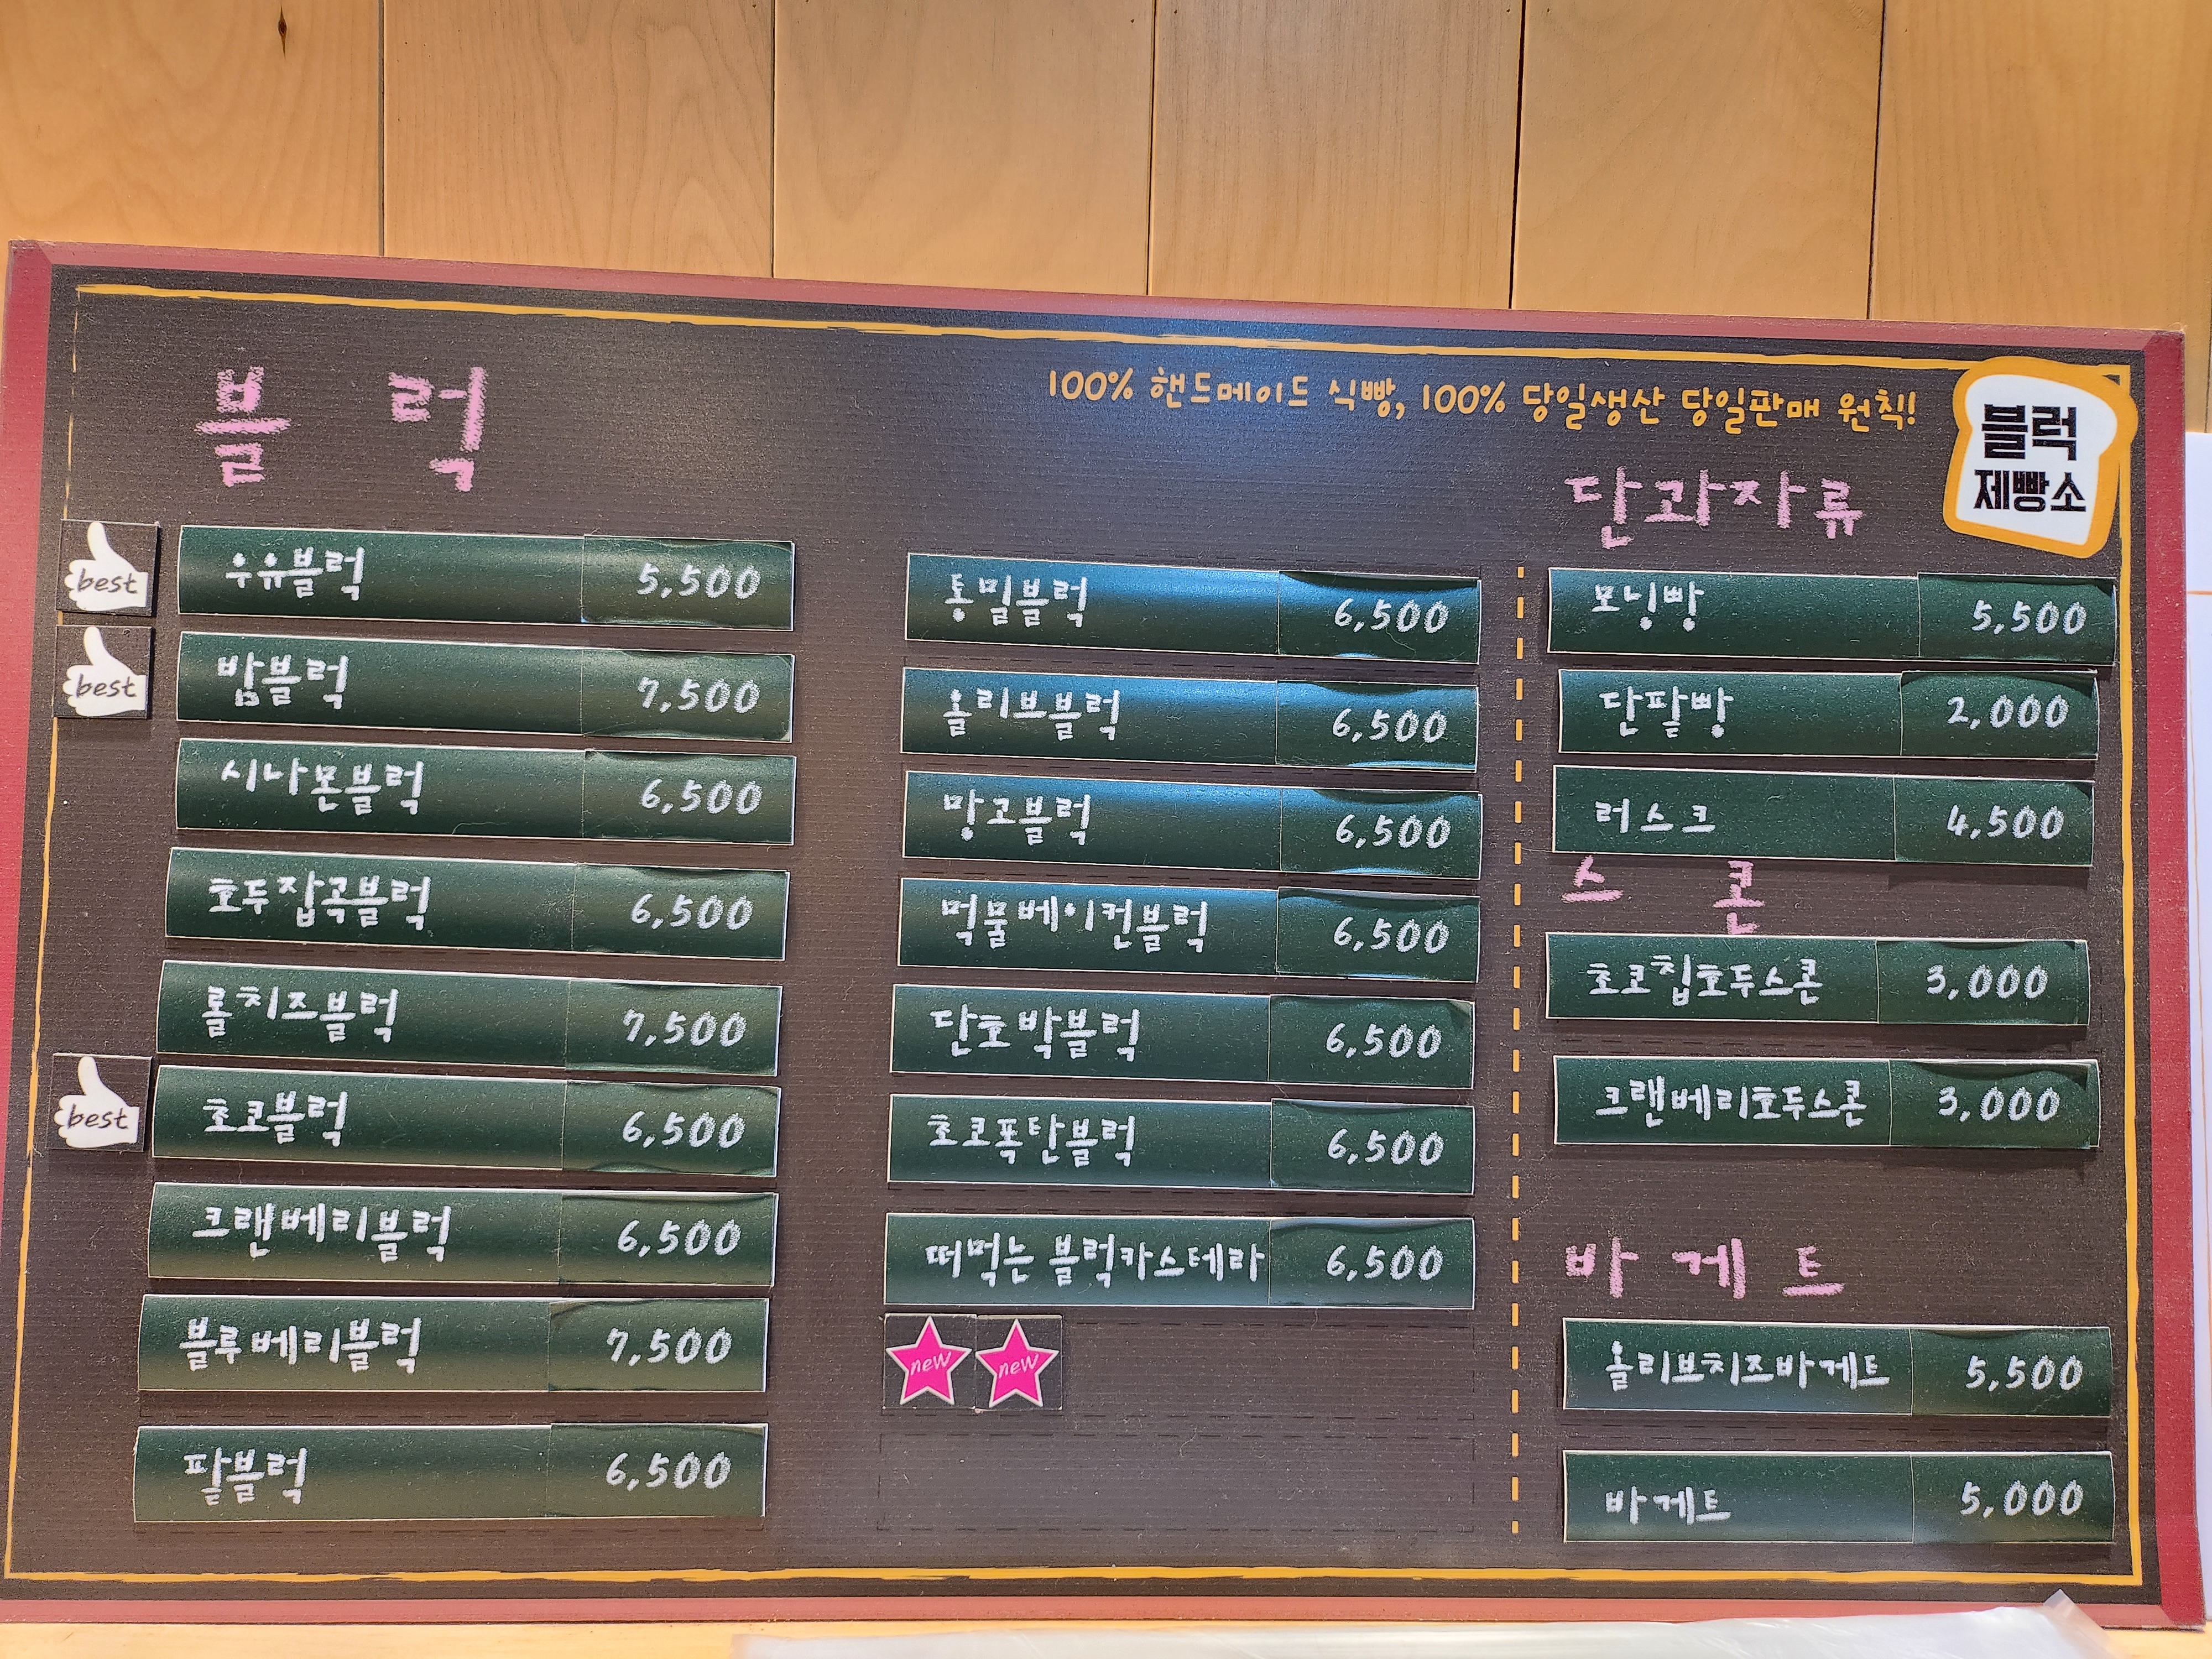 100% 핸드메이드 식빵, 100% 당일생산 당일판매 원칙!
블럭
제빵소
블럭
best
우유블럭 5,500
best
밤블럭 7,500
시나몬블럭 6,500
호두잡곡블럭 6,500
롤치즈블럭 7,500
best
초코블럭 6,500
크랜베리블럭 6,500
블루베리블럭 7,500
팥블럭 6,500
통밀블럭 6,500
올리브블럭 6,500
망고블럭 6,500
먹물베이컨블럭 6,500
단호박블럭 6,500
초코폭탄블럭 6,500
떠먹는 블럭카스테라 6,500
new new
단과자류
모닝빵 5,500
단팥빵 2,000
러스크 4,500
스콘
초코칩호두스콘 3,000
크랜베리호두스콘 3,000
바게트
올리브치즈바게트 5,500
바게트 5,000